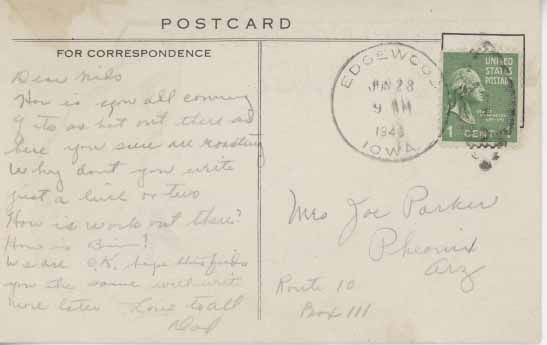 POSTCARD
FOR CORRESPONDENCE
Dear Kids
How is you all coming
If its as hot out there as
here you sure are roasting
Why dont you write
just a line or two
How is work out there?
How is
We are O.K. hope this finds
you the same will write
more later Love to all
Dad
EDGEWOOD
JUN 28
9 AM
IOWA
UNITED
STATES
POSTAGE
1 CENT
Mrs Joe Parker
Pheonix
Arz
Route 10
Box 111